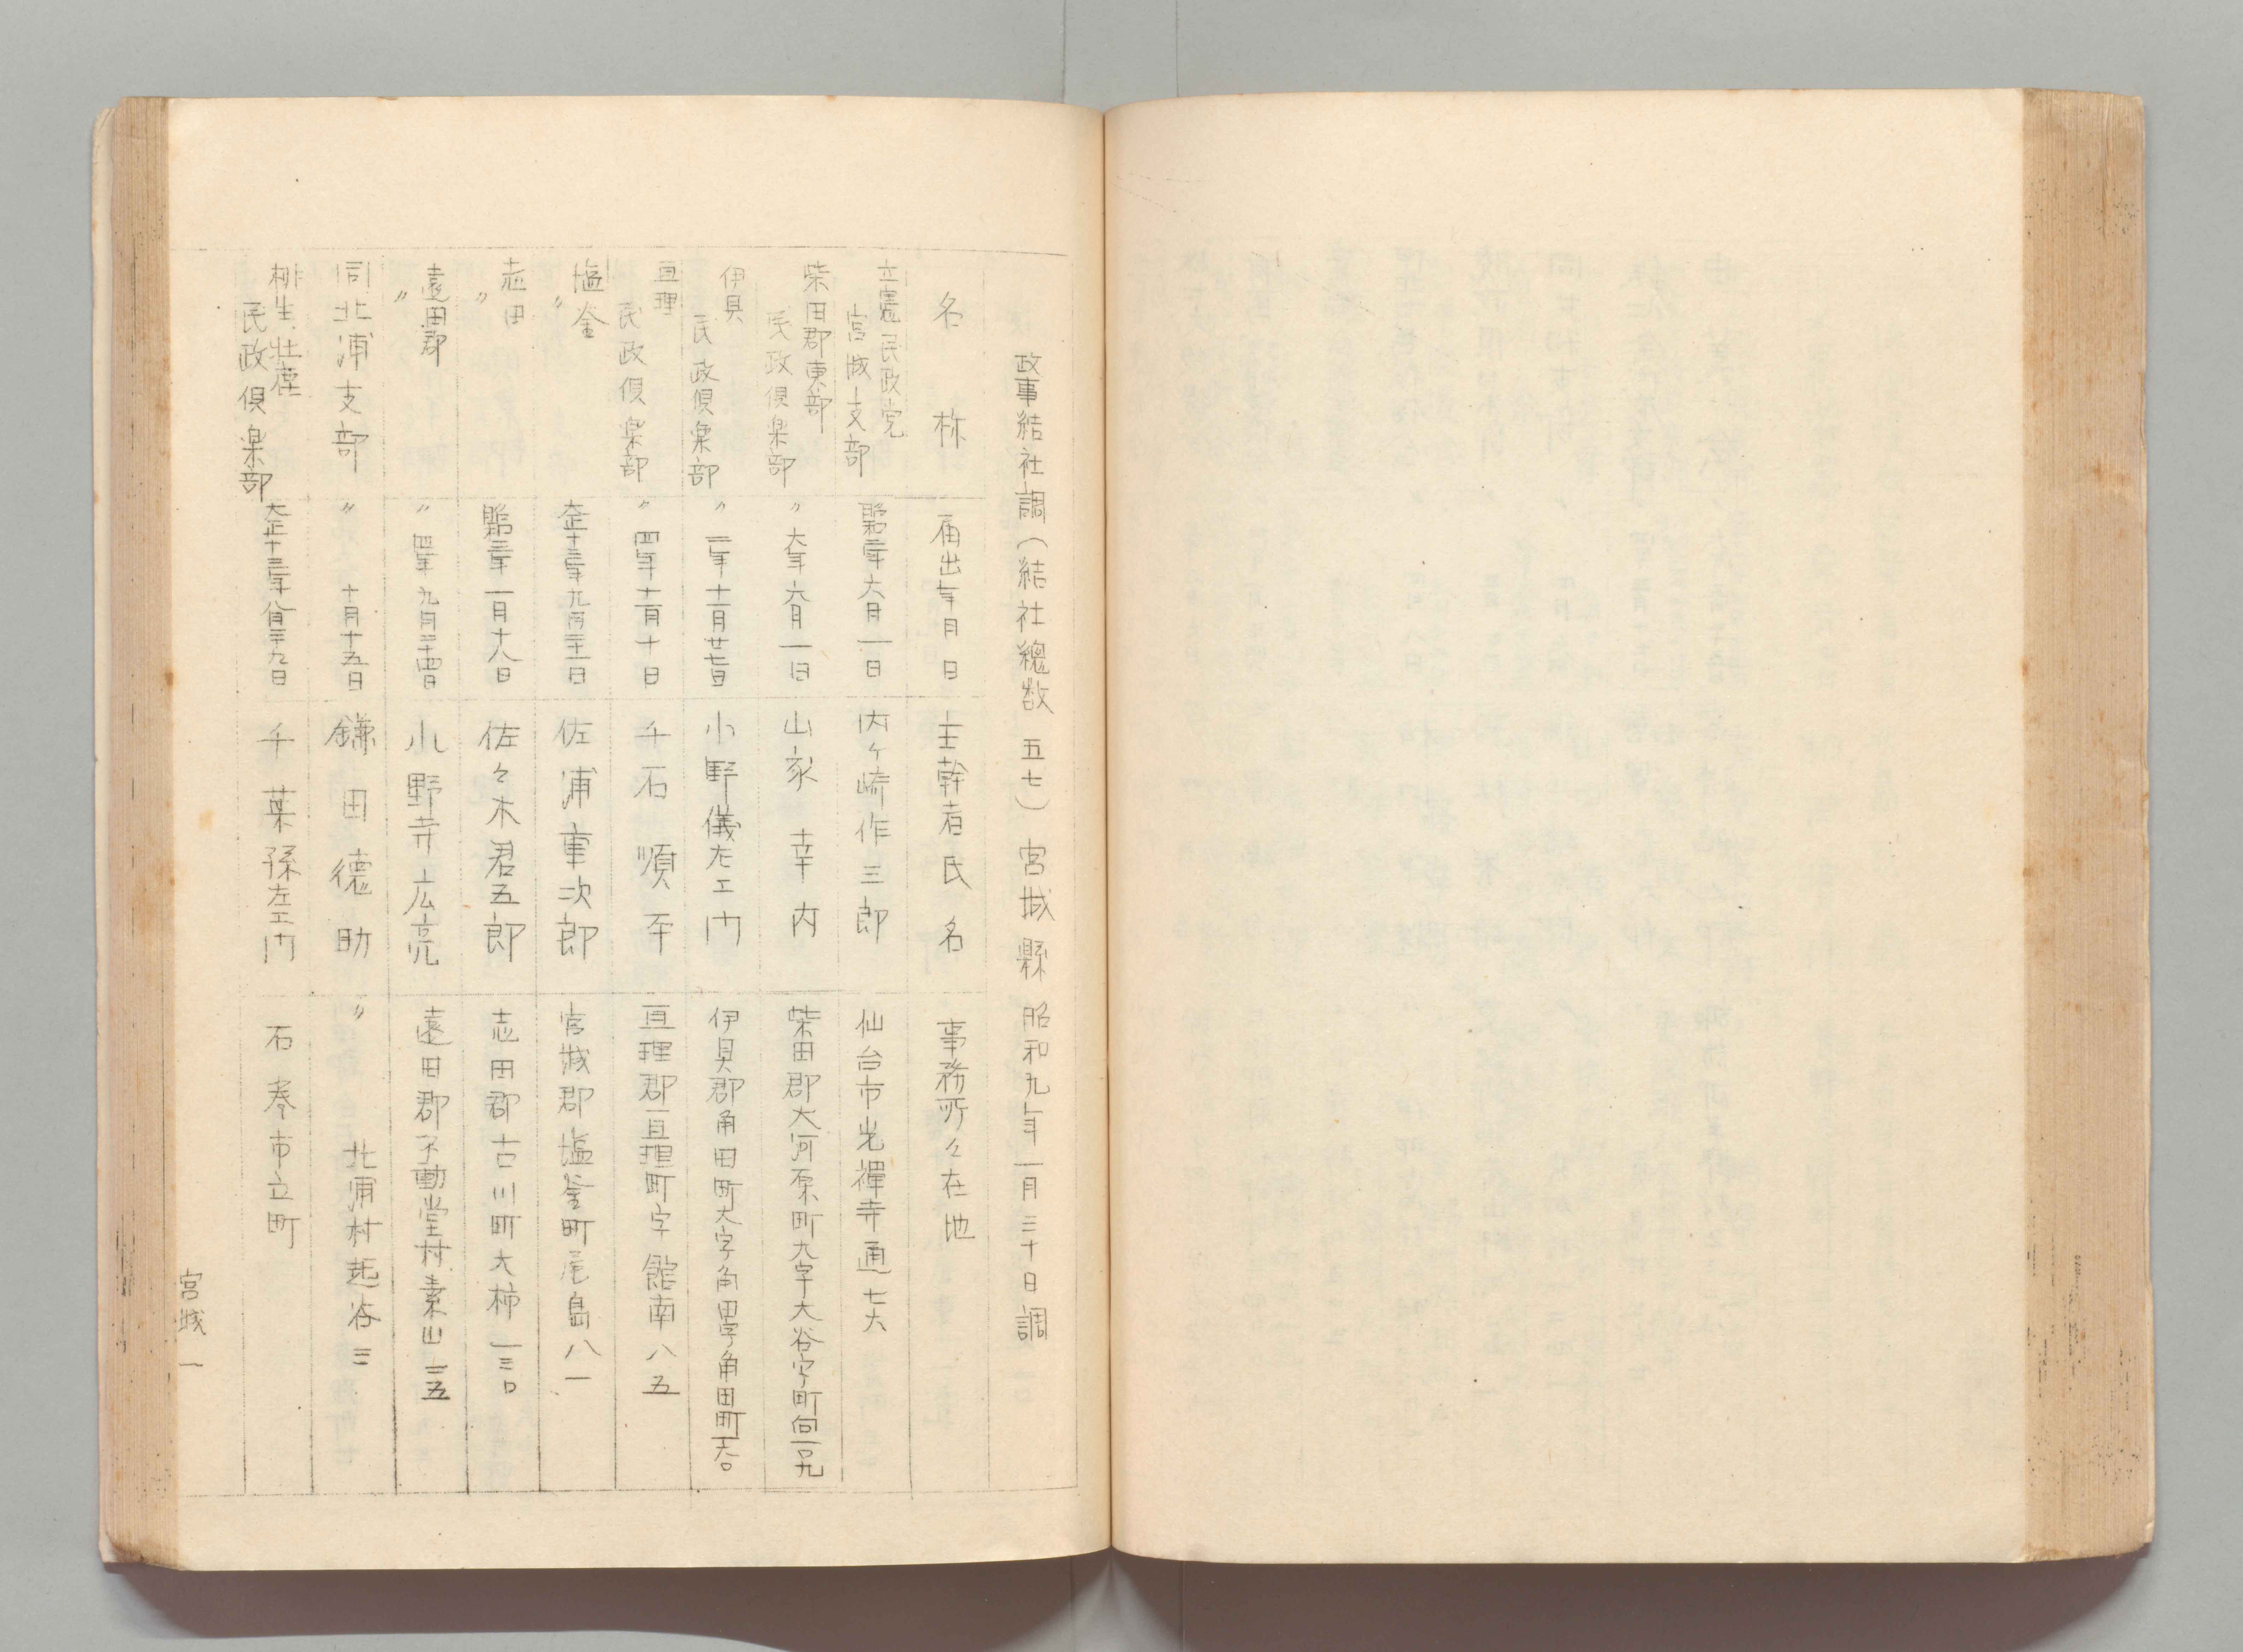 政事結社調（結社總数 五七）宮城縣 昭和九年一月三十日調
名称 届出年月日 主幹者氏名 事務所々在地
立憲民政党
宮城支部 昭和二年六月一日 内ヶ崎作三郎 仙台市光禪寺通七六
柴田郡東部
民政倶楽部 〃 六年六月一日 山家幸内 柴田郡大河原町大字大谷字町向
伊具
民政倶楽部 〃 二年十一月廿七日 小野儀左エ門 伊具郡角田町大字角田字角田町
亘理
民政倶楽部 〃 四年十一月十日 千石順平 亘理郡亘理町字館南八五
塩釜
〃 大正十三年九月二十一日 佐浦重次郎 宮城郡塩釜町尾島八一
志田
〃 昭和三年一月十八日 佐々木君五郎 志田郡古川町大柿一三〇
遠田郡
〃 〃 四年九月二十四日 小野寺広亮 遠田郡不動堂村素山三五
同北浦支部 〃 十月十五日 鎌田徳助 〃 北浦村起谷三
桃生、牡鹿
民政倶楽部 大正十三年八月二十九日 千葉孫左エ門 石巻市立町
宮城 一